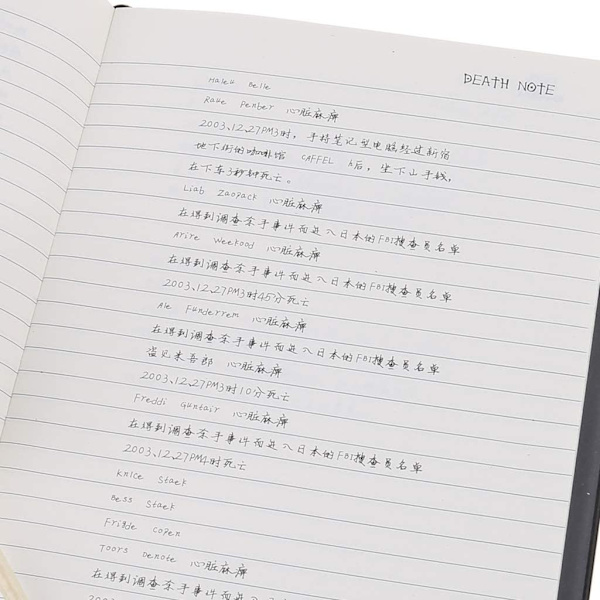 DEATH NOTE
Haley Belle
Raye Penber 心脏麻痹
2003、12、27PM3时，手持笔记型电脑经过新宿
地下街的咖啡馆 CAFFEL h后，坐下山手线，
在下车3秒钟死亡。
Liab Zaopack 心脏麻痹
在得到调查杀手事件而进入日本的FBI搜查员名单
Arire Weekood 心脏麻痹
在得到调查杀手事件而进入日本的FBI搜查员名单
2003、12、27PM3时45分死亡
Ale Funderrem 心脏麻痹
在得到调查杀手事件而进入日本的FBI搜查员名单
盗见来吾郎 心脏麻痹
2003、12、27PM3时10分死亡
Freddi Guntair 心脏麻痹
在得到调查杀手事件而进入日本的FBI搜查员名单
2003、12、27PM4时死亡
Knice Staek
Bess Staek
Frigde Copen
Toors Denote 心脏麻痹
在得到调查杀手事件而进入日本的FBI搜查员名单